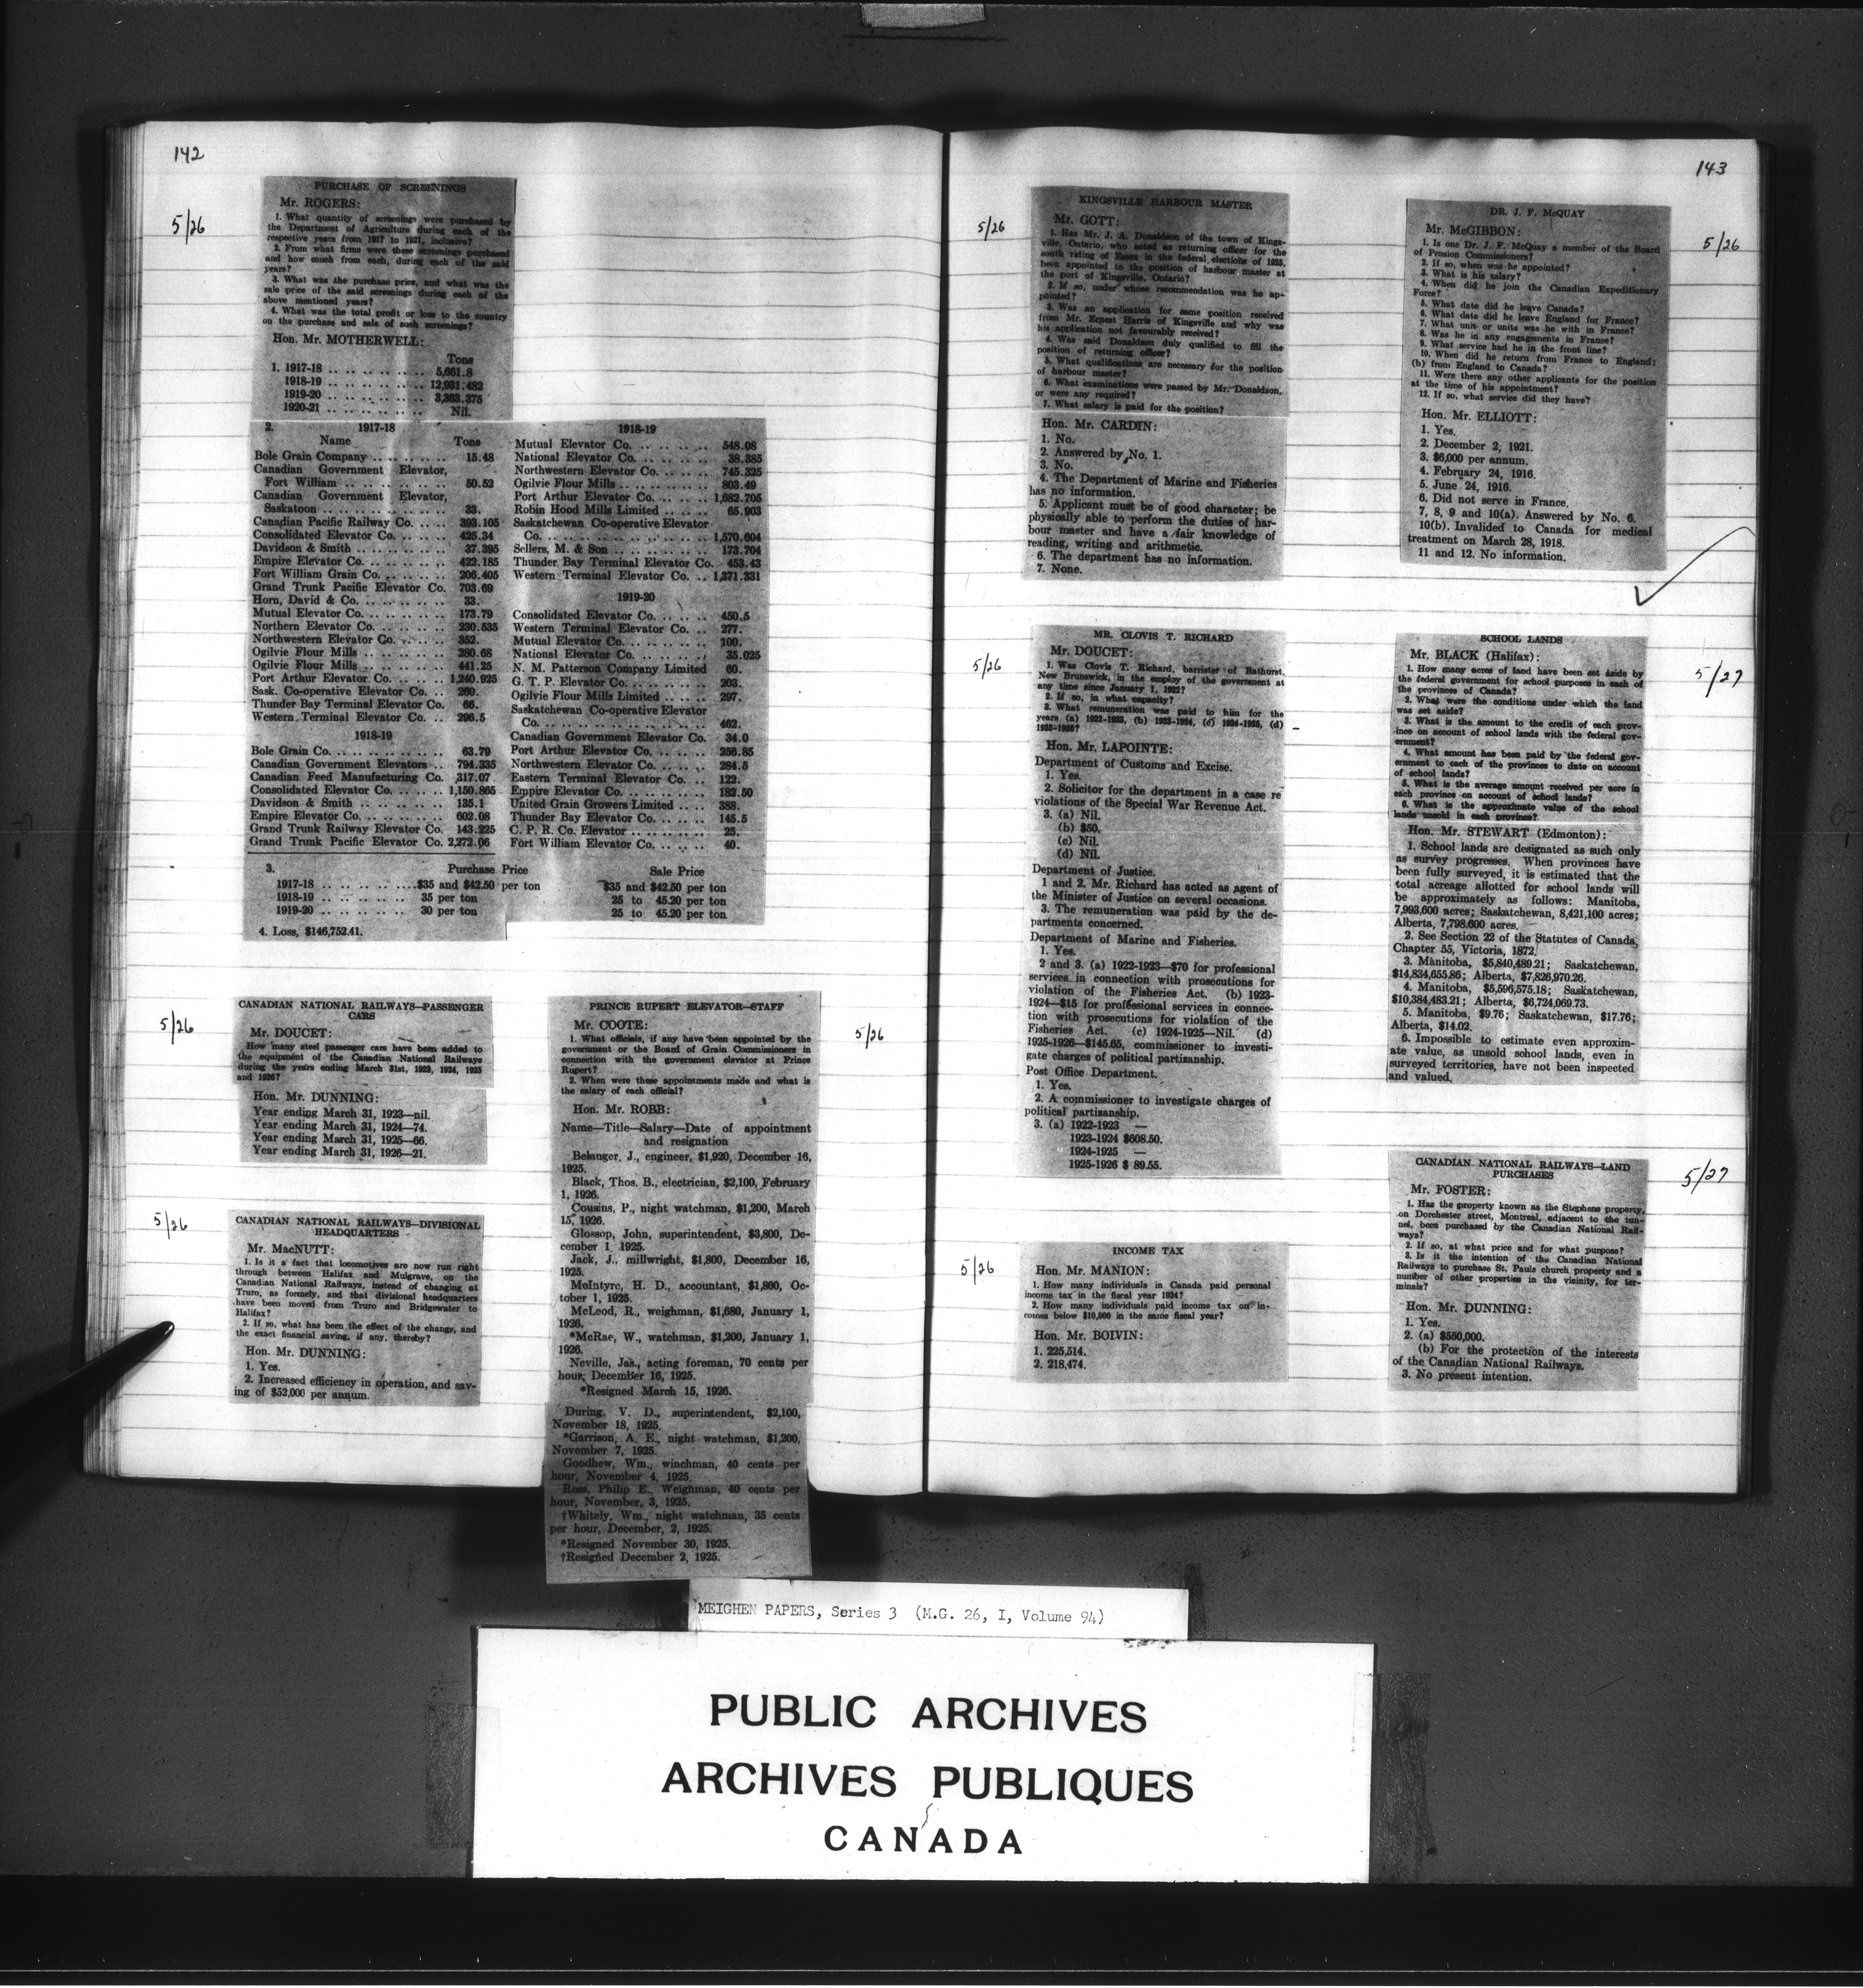 142
5/26
PURCHASE OF SCREENINGS
Mr. ROGERS:
1. What quantity of screenings were purchased by
the Department of Agriculture during each of the
respective years from 1917 to 1921, inclusive?
2. From what firms were these screenings purchased
and how much from each, during each of the said
years?
3. What was the purchase price, and what was the
sale price of the said screenings during each of the
above mentioned years?
4. What was the total profit or loss to the country
on the purchase and sale of such screenings?
Hon. Mr. MOTHERWELL:
Tons
1. 1917-18 .. .. .. .. .. .. .. 5,661.8
1918-19 .. .. .. .. .. .. .. 12,931.482
1919-20 .. .. .. .. .. .. .. 3,363.375
1920-21 .. .. .. .. .. .. .. Nil.
2. 1917-18
Name Tons
Bole Grain Company .. .. .. .. .. 15.48
Canadian Government Elevator,
Fort William .. .. .. .. .. .. 50.52
Canadian Government Elevator,
Saskatoon .. .. .. .. .. .. .. 33.
Canadian Pacific Railway Co. .. .. .. 393.105
Consolidated Elevator Co. .. .. .. .. 425.34
Davidson & Smith .. .. .. .. .. .. 37.395
Empire Elevator Co. .. .. .. .. .. 422.185
Fort William Grain Co. .. .. .. .. 206.405
Grand Trunk Pacific Elevator Co. 703.69
Horn, David & Co. .. .. .. .. .. 33.
Mutual Elevator Co. .. .. .. .. .. 173.79
Northern Elevator Co. .. .. .. .. 230.535
Northwestern Elevator Co. .. .. .. 352.
Ogilvie Flour Mills .. .. .. .. .. 280.68
Ogilvie Flour Mills .. .. .. .. .. 441.25
Port Arthur Elevator Co. .. .. .. 1,240.925
Sask. Co-operative Elevator Co. .. 260.
Thunder Bay Terminal Elevator Co. 66.
Western Terminal Elevator Co. .. .. 296.5
1918-19
Bole Grain Co. .. .. .. .. .. .. 63.79
Canadian Government Elevators .. .. 794.335
Canadian Feed Manufacturing Co. 317.07
Consolidated Elevator Co. .. .. .. 1,150.865
Davidson & Smith .. .. .. .. .. 135.1
Empire Elevator Co. .. .. .. .. .. 602.08
Grand Trunk Railway Elevator Co. 143.225
Grand Trunk Pacific Elevator Co. 2,272.06
1918-19
Mutual Elevator Co. .. .. .. .. .. 548.08
National Elevator Co. .. .. .. .. 38.385
Northwestern Elevator Co. .. .. .. 745.325
Ogilvie Flour Mills .. .. .. .. .. 803.49
Port Arthur Elevator Co. .. .. .. 1,682.705
Robin Hood Mills Limited .. .. .. 65.903
Saskatchewan Co-operative Elevator
Co. .. .. .. .. .. .. .. .. 1,570.604
Sellers, M. & Son .. .. .. .. .. 173.704
Thunder Bay Terminal Elevator Co. 453.43
Western Terminal Elevator Co. .. 1,371.331
1919-20
Consolidated Elevator Co. .. .. .. 450.5
Western Terminal Elevator Co. .. 277.
Mutual Elevator Co. .. .. .. .. 100.
National Elevator Co. .. .. .. .. 35.025
N. M. Patterson Company Limited 60.
G. T. P. Elevator Co. .. .. .. .. 203.
Ogilvie Flour Mills Limited .. .. 297.
Saskatchewan Co-operative Elevator
Co. .. .. .. .. .. .. .. .. 462.
Canadian Government Elevator Co. 34.0
Port Arthur Elevator Co. .. .. .. 256.85
Northwestern Elevator Co. .. .. .. 284.5
Eastern Terminal Elevator Co. .. 122.
Empire Elevator Co. .. .. .. .. 182.50
United Grain Growers Limited .. .. 388.
Thunder Bay Elevator Co. .. .. .. 145.5
C. P. R. Co. Elevator .. .. .. .. 25.
Fort William Elevator Co. .. .. 40.
3. Purchase Price Sale Price
1917-18 .. .. .. .. ..$35 and $42.50 per ton $35 and $42.50 per ton
1918-19 .. .. .. .. .. 35 per ton 25 to 45.20 per ton
1919-20 .. .. .. .. .. 30 per ton 25 to 45.20 per ton
4. Loss, $146,752.41.
5/26
CANADIAN NATIONAL RAILWAYS—PASSENGER
CARS
Mr. DOUCET:
How many steel passenger cars have been added to
the equipment of the Canadian National Railways
during the years ending March 31st, 1923, 1924, 1925
and 1926?
Hon. Mr. DUNNING:
Year ending March 31, 1923—nil.
Year ending March 31, 1924—74.
Year ending March 31, 1925—66.
Year ending March 31, 1926—21.
5/26
CANADIAN NATIONAL RAILWAYS—DIVISIONAL
HEADQUARTERS
Mr. MacNUTT:
1. Is it a fact that locomotives are now run right
through between Halifax and Mulgrave, on the
Canadian National Railways, instead of changing at
Truro, as formely, and that divisional headquarters
have been moved from Truro and Bridgewater to
Halifax?
2. If so, what has been the effect of the change, and
the exact financial saving, if any, thereby?
Hon. Mr. DUNNING:
1. Yes.
2. Increased efficiency in operation, and sav-
ing of $52,000 per annum.
5/26
PRINCE RUPERT ELEVATOR—STAFF
Mr. COOTE:
1. What officials, if any have been appointed by the
government or the Board of Grain Commissioners in
connection with the government elevator at Prince
Rupert?
2. When were these appointments made and what is
the salary of each official?
Hon. Mr. ROBB:
Name—Title—Salary—Date of appointment
and resignation
Belanger, J., engineer, $1,920, December 16,
1925.
Black, Thos. B., electrician, $2,100, February
1, 1926.
Cousins, P., night watchman, $1,200, March
15, 1926.
Glossop, John, superintendent, $3,800, De-
cember 1, 1925.
Jack, J., millwright, $1,800, December 16,
1925.
McIntyre, H. D., accountant, $1,800, Oc-
tober 1, 1925.
McLeod, R., weighman, $1,680, January 1,
1926.
*McRae, W., watchman, $1,200, January 1,
1926.
Neville, Jas., acting foreman, 70 cents per
hour, December 16, 1925.
*Resigned March 15, 1926.
During, V. D., superintendent, $2,100,
November 18, 1925.
*Garrison, A. E., night watchman, $1,200,
November 7, 1925.
Goodhew, Wm., winchman, 40 cents per
hour, November 4, 1925.
Ross, Philip E., Weighman, 40 cents per
hour, November, 3, 1925.
†Whitely, Wm., night watchman, 35 cents
per hour, December, 2, 1925.
*Resigned November 30, 1925.
†Resigned December 2, 1925.
143
5/26
KINGSVILLE HARBOUR MASTER
Mr. GOTT:
1. Has Mr. J. A. Donaldson of the town of Kings-
ville, Ontario, who acted as returning officer for the
south riding of Essex in the federal elections of 1925,
been appointed to the position of harbour master at
the port of Kingsville, Ontario?
2. If so, under whose recommendation was he ap-
pointed?
3. Was an application for same position received
from Mr. Ernest Harris of Kingsville and why was
his application not favourably received?
4. Was said Donaldson duly qualified to fill the
position of returning officer?
5. What qualifications are necessary for the position
of harbour master?
6. What examinations were passed by Mr. Donaldson,
or were any required?
7. What salary is paid for the position?
Hon. Mr. CARDIN:
1. No.
2. Answered by No. 1.
3. No.
4. The Department of Marine and Fisheries
has no information.
5. Applicant must be of good character; be
physically able to perform the duties of har-
bour master and have a fair knowledge of
reading, writing and arithmetic.
6. The department has no information.
7. None.
5/26
MR. CLOVIS T. RICHARD
Mr. DOUCET:
1. Was Clovis T. Richard, barrister of Bathurst,
New Brunswick, in the employ of the government at
any time since January 1, 1922?
2. If so, in what capacity?
3. What remuneration was paid to him for the
years (a) 1922-1923, (b) 1923-1924, (c) 1924-1925, (d)
1925-1926?
Hon. Mr. LAPOINTE:
Department of Customs and Excise.
1. Yes.
2. Solicitor for the department in a case re
violations of the Special War Revenue Act.
3. (a) Nil.
(b) $50.
(c) Nil.
(d) Nil.
Department of Justice.
1 and 2. Mr. Richard has acted as agent of
the Minister of Justice on several occasions.
3. The remuneration was paid by the de-
partments concerned.
Department of Marine and Fisheries.
1. Yes.
2 and 3. (a) 1922-1923—$70 for professional
services in connection with prosecutions for
violation of the Fisheries Act. (b) 1923-
1924—$15 for professional services in connec-
tion with prosecutions for violation of the
Fisheries Act. (c) 1924-1925—Nil. (d)
1925-1926—$145.65, commissioner to investi-
gate charges of political partizanship.
Post Office Department.
1. Yes.
2. A commissioner to investigate charges of
political partizanship.
3. (a) 1922-1923 —
1923-1924 $608.50.
1924-1925 —
1925-1926 $ 89.55.
5/26
INCOME TAX
Hon. Mr. MANION:
1. How many individuals in Canada paid personal
income tax in the fiscal year 1924?
2. How many individuals paid income tax on in-
comes below $10,000 in the same fiscal year?
Hon. Mr. BOIVIN:
1. 225,514.
2. 218,474.
5/26
DR. J. F. McQUAY
Mr. McGIBBON:
1. Is one Dr. J. F. McQuay a member of the Board
of Pension Commissioners?
2. If so, when was he appointed?
3. What is his salary?
4. When did he join the Canadian Expeditionary
Force?
5. What date did he leave Canada?
6. What date did he leave England for France?
7. What unit or units was he with in France?
8. Was he in any engagements in France?
9. What service had he in the front line?
10. When did he return from France to England;
(b) from England to Canada?
11. Were there any other applicants for the position
at the time of his appointment?
12. If so, what service did they have?
Hon. Mr. ELLIOTT:
1. Yes.
2. December 2, 1921.
3. $6,000 per annum.
4. February 24, 1916.
5. June 24, 1916.
6. Did not serve in France.
7, 8, 9 and 10(a). Answered by No. 6.
10(b). Invalided to Canada for medical
treatment on March 28, 1918.
11 and 12. No information.
5/27
SCHOOL LANDS
Mr. BLACK (Halifax):
1. How many acres of land have been set aside by
the federal government for school purposes in each of
the provinces of Canada?
2. What were the conditions under which the land
was set aside?
3. What is the amount to the credit of each prov-
ince on account of school lands with the federal gov-
ernment?
4. What amount has been paid by the federal gov-
ernment to each of the provinces to date on account
of school lands?
5. What is the average amount received per acre in
each province on account of school lands?
6. What is the approximate value of the school
lands unsold in each province?
Hon. Mr. STEWART (Edmonton):
1. School lands are designated as such only
as survey progresses. When provinces have
been fully surveyed, it is estimated that the
total acreage allotted for school lands will
be approximately as follows: Manitoba,
7,993,600 acres; Saskatchewan, 8,421,100 acres;
Alberta, 7,798,600 acres.
2. See Section 22 of the Statutes of Canada,
Chapter 55, Victoria, 1872.
3. Manitoba, $5,840,489.21; Saskatchewan,
$14,834,655.86; Alberta, $7,826,970.26.
4. Manitoba, $5,596,575.18; Saskatchewan,
$10,384,483.21; Alberta, $6,724,069.73.
5. Manitoba, $9.76; Saskatchewan, $17.76;
Alberta, $14.02.
6. Impossible to estimate even approxim-
ate value, as unsold school lands, even in
surveyed territories, have not been inspected
and valued.
5/27
CANADIAN NATIONAL RAILWAYS—LAND
PURCHASES
Mr. FOSTER:
1. Has the property known as the Stephens property,
on Dorchester street, Montreal, adjacent to the tun-
nel, been purchased by the Canadian National Rail-
ways?
2. If so, at what price and for what purpose?
3. Is it the intention of the Canadian National
Railways to purchase St. Paul's church property and a
number of other properties in the vicinity, for ter-
minals?
Hon. Mr. DUNNING:
1. Yes.
2. (a) $550,000.
(b) For the protection of the interests
of the Canadian National Railways.
3. No present intention.
MEIGHEN PAPERS, Series 3 (M.G. 26, I, Volume 94)
PUBLIC ARCHIVES
ARCHIVES PUBLIQUES
CANADA